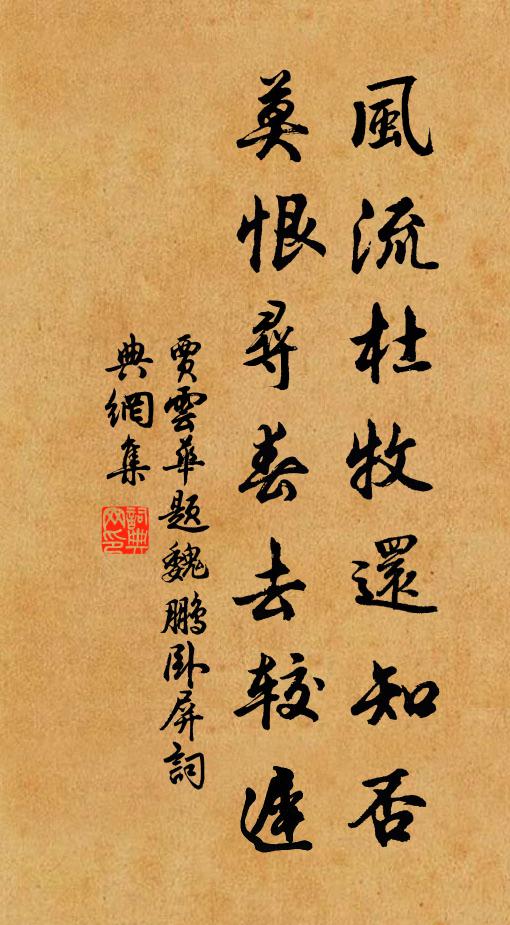 風流杜牧還知否
莫恨尋春去较遲
賈雲華題魏鵬卧屏詞
典網集
詞典網印